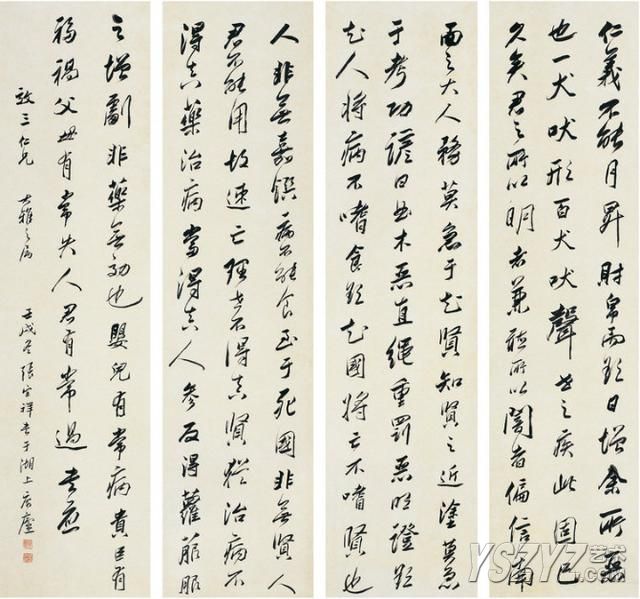 仁義不能月昇財帛而欲日增余所惡
也一犬吠形百犬吠聲世之疾此固已
久矣君之所以明者兼聽所以闇者偏信南
面之大人務莫急于知賢知賢之近塗莫急
于考功諺曰曲木惡直繩重罰惡明證欲
知人將病不嗜食欲知國將亡不嗜賢也
人非無嘉饌病不能食至于死國非無賢人
君不能用故速亡理世不得真賢猶治病不
得真藥治病當得真人參反得蘿菔服
之增劇非藥無功也嬰兒有常病貴臣有
禍父母有常失人君有常過書應
敬三仁兄 大雅之屬 壬戌冬張宗祥書于湖上廬
YSZYZ艺术